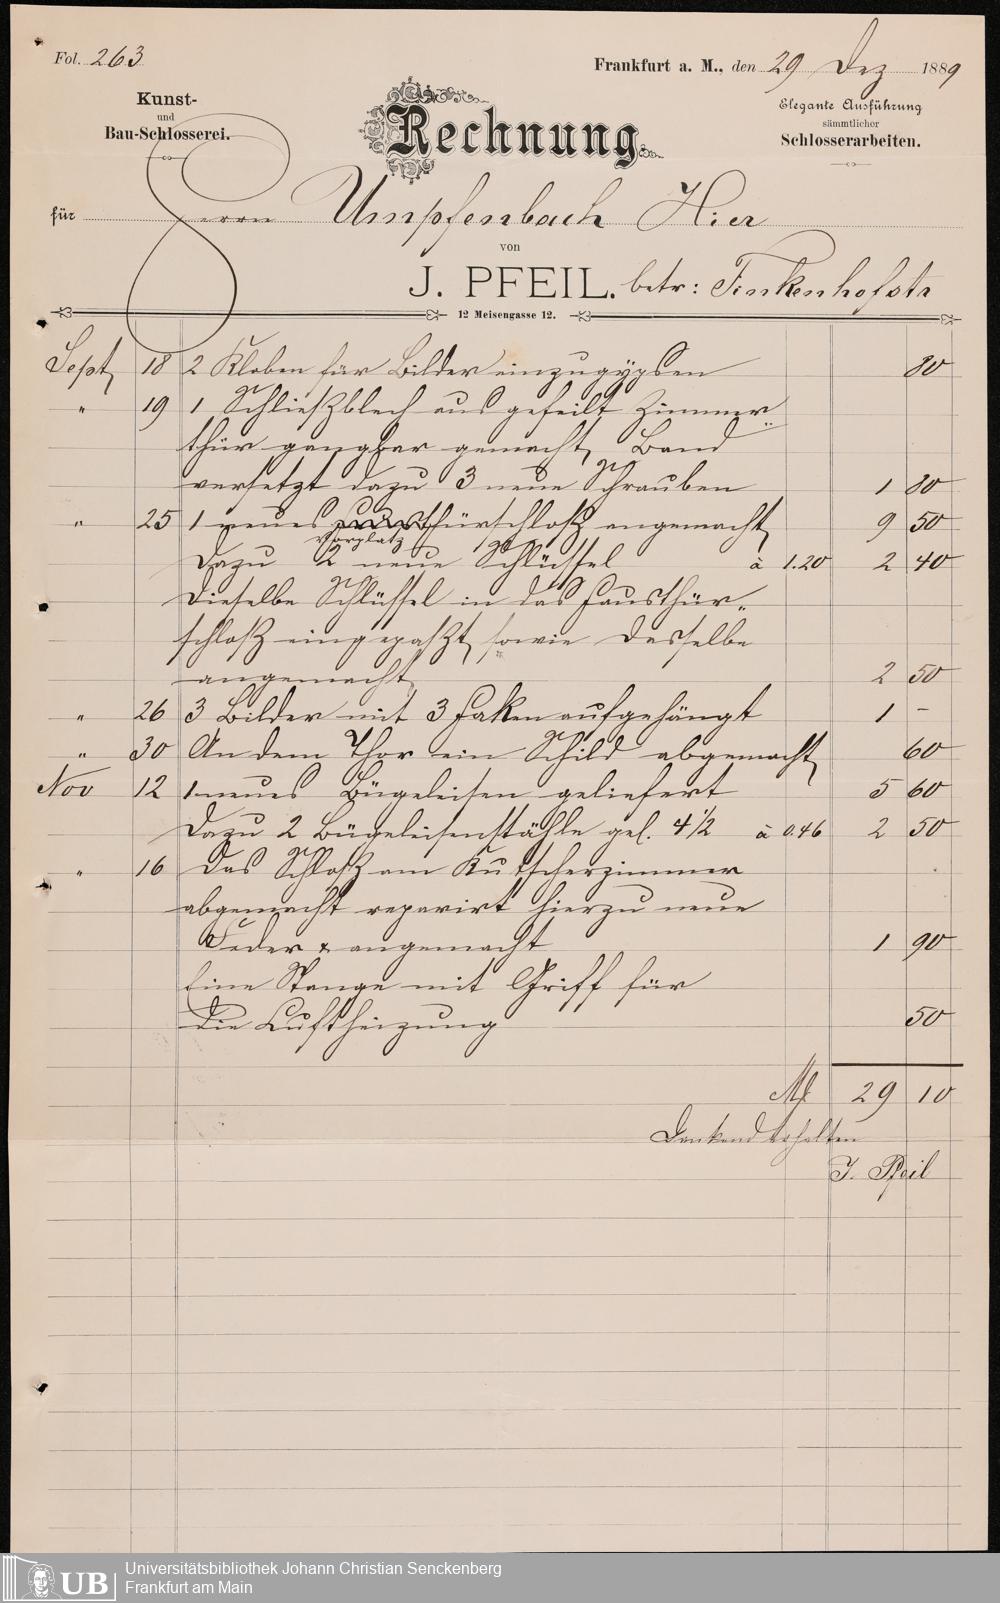 Fol. 263
Frankfurt a. M., den 29 Dez 1889
Kunst-
und
Bau-Schlosserei.
Rechnung
Elegante Ausführung
sämmtlicher
Schlosserarbeiten.
für Herrn Umpfenbach Hier
von
J. PFEIL. betr: Finkenhofstr
12 Meisengasse 12.
Sept 18 2 Kloben für Bilder einzugypsen 80
" 19 1 Schließblech aus gefeilt Zimmer-
thür gangbar gemacht, Band
versetzt dazu 3 neue Schrauben 1 80
" 25 1 neues Vorplatzthürschloß angemacht 9 50
Dazu 2 neue Schlüssel à 1.20 2 40
Dieselbe Schlüssel in das Hausthür-
schloß eingepaßt, sowie dasselbe
angemacht 2 50
" 26 3 Bilder mit 3 Haken aufgehängt 1 –
" 30 An dem Thor ein Schild abgemacht 60
Nov 12 1 neues Bügeleisen geliefert 5 60
Dazu 2 Bügeleisenstähle gel. 4 1/2 à 0.46 2 50
" 16 Das Schloß am Kutscherzimmer
abgemacht reparirt hierzu neue
Feder & angemacht 1 90
Eine Stange mit Griff für
die Luftheizung 50
M 29 10
Dankend erhalten
J. Pfeil
UB Universitätsbibliothek Johann Christian Senckenberg
Frankfurt am Main